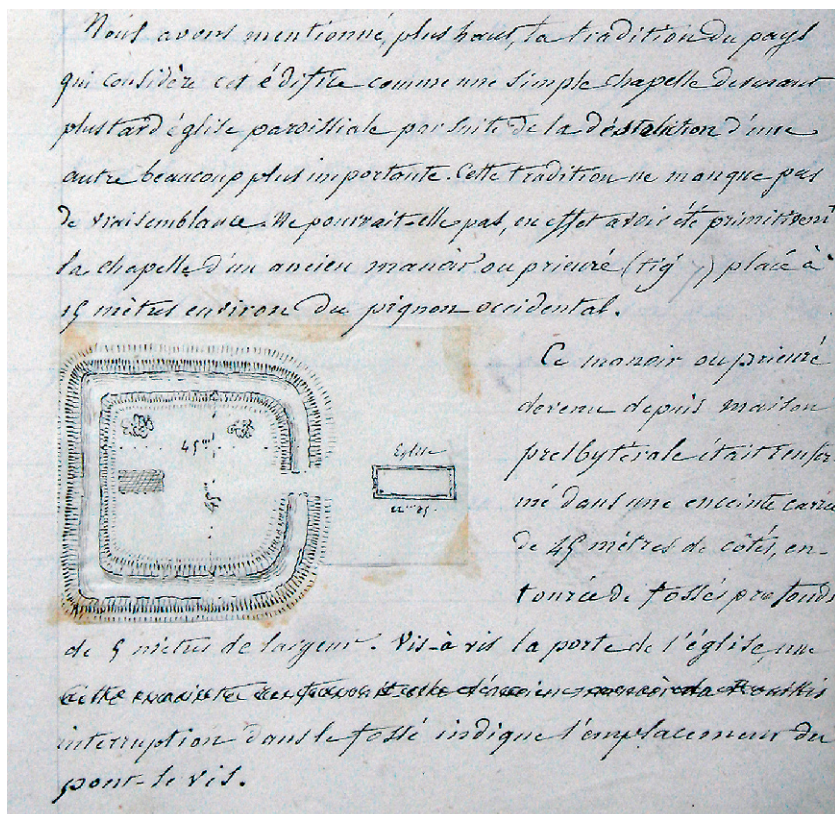 Nous avons mentionné, plus haut, la tradition du pays
qui considère cet édifice comme une simple chapelle devenant
plus tard église paroissiale par suite de la destruction d'une
autre beaucoup plus importante. Cette tradition ne manque pas
de vraisemblance. Ne pourrait-elle pas, en effet avoir été primitivemt
la chapelle d'un ancien manoir ou prieuré (fig 7) placé à
15 mètres environ du pignon occidental.
Ce manoir ou prieuré
devenu depuis maison
presbytérale était renfer
mé dans une enceinte carrée
de 45 mètres de côtés, en-
tourée de fossés profonds
45m
45m
Eglise
de 5 mètres de largeur. Vis-à vis la porte de l'église, une
interruption dans le fossé indique l'emplacement du
pont-levis.